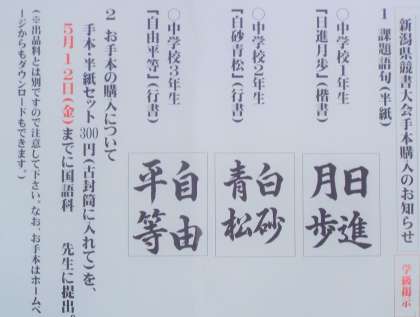 新潟県競書大会手本購入のお知らせ
学級掲示
1 課題語句(半紙)
○中学校1年生
『日進月歩』(楷書)
○中学校2年生
『白砂青松』(行書)
○中学校3年生
『自由平等』(行書)
日進
月歩
白砂
青松
自由
平等
2 お手本の購入について
手本・半紙セット300円(古封筒に入れて)を、
5月12日(金)までに国語科 先生に提出。
(※出品料とは別ですので注意して下さい。なお、お手本はホームペ
ージからもダウンロードもできます。)